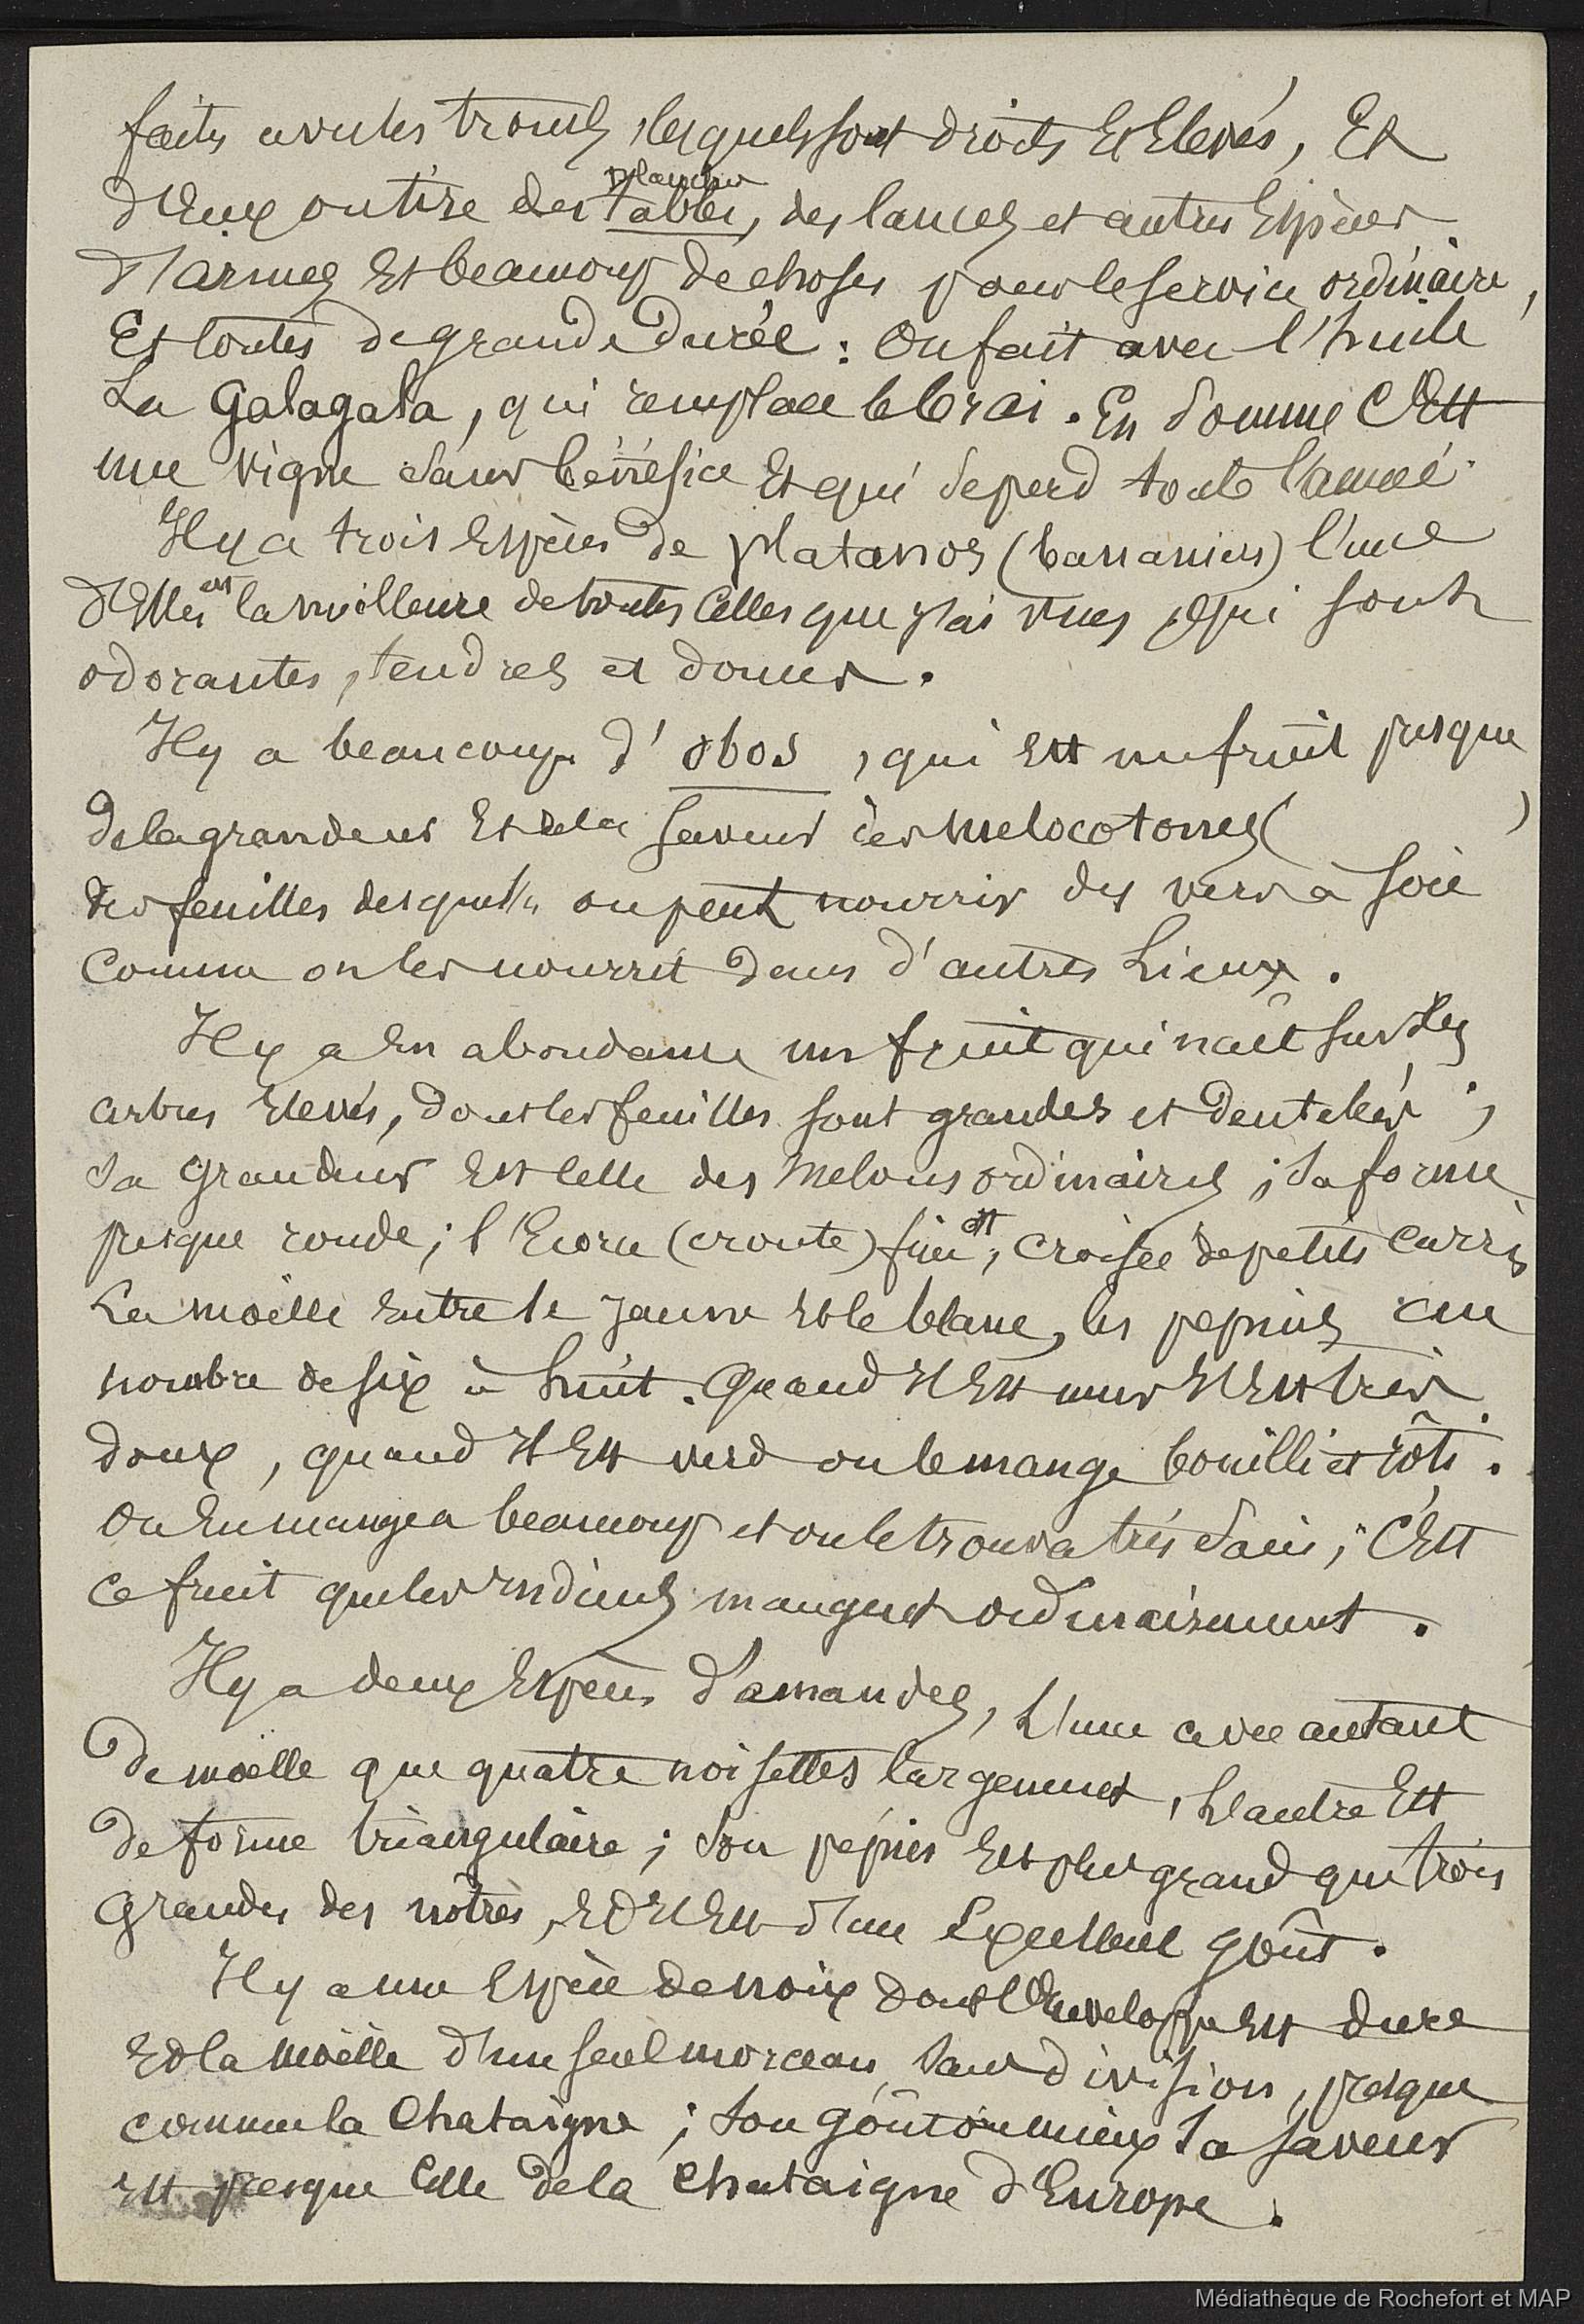 faits avec les troncs, lesquels sont droits et Elevés, Et
planches
d'Eux on tire des tables, des lances et autres Espèces
d'armes Et beaucoup de choses pour le service ordinaire,
Et toutes de grande durée : On fait avec l'huile
La Galagala, qui remplace le brai. En somme C'Est
une vigne sans bénéfice Et qui se perd toute l'année.
Il y a trois Espèces de platanos (bananiers) l'une
d'Elles est la meilleure de toutes Celles que j'ai vues, Qui sont
odorantes, tendres et douces.
Il y a beaucoup d'obos, qui Est un fruit presque
de la grandeur Et de la saveur des melocotones ( )
des feuilles desquels on peut nourrir des vers à soie
Comme on les nourrit dans d'autres Lieux.
Il y a En abondance un fruit qui naît sur des
arbres Elevés, dont les feuilles sont grandes et dentelées ;
sa grandeur Est celle des melons ordinaires ; sa forme
presque ronde ; l'Ecorce (croute) fine est, croisée de petits carrés
La moëlle Entre le jaune Et le blanc, les pepins au
nombre de six à huit. Quand Il Est mur Il Est très
doux, quand Il Est verd on le mange bouilli et rôti.
On En mangea beaucoup et on le trouva très sain ; C'Est
ce fruit que les Indiens mangent ordinairement.
Il y a deux Espèces d'amandes, L'une avec autant
de moëlle que quatre noisettes largement, L'autre Est
de forme triangulaire ; son pépin Est plus grand que trois
grandes des nôtres, Et Il Est d'un Excellent goût.
Il y a une Espèce de noix dont l'Enveloppe Est dure
Et la moëlle d'un seul morceau, sans division, presque
comme la Chataigne ; son goût ou mieux sa saveur
Est presque Celle de la Chataigne d'Europe.
Médiathèque de Rochefort et MAP